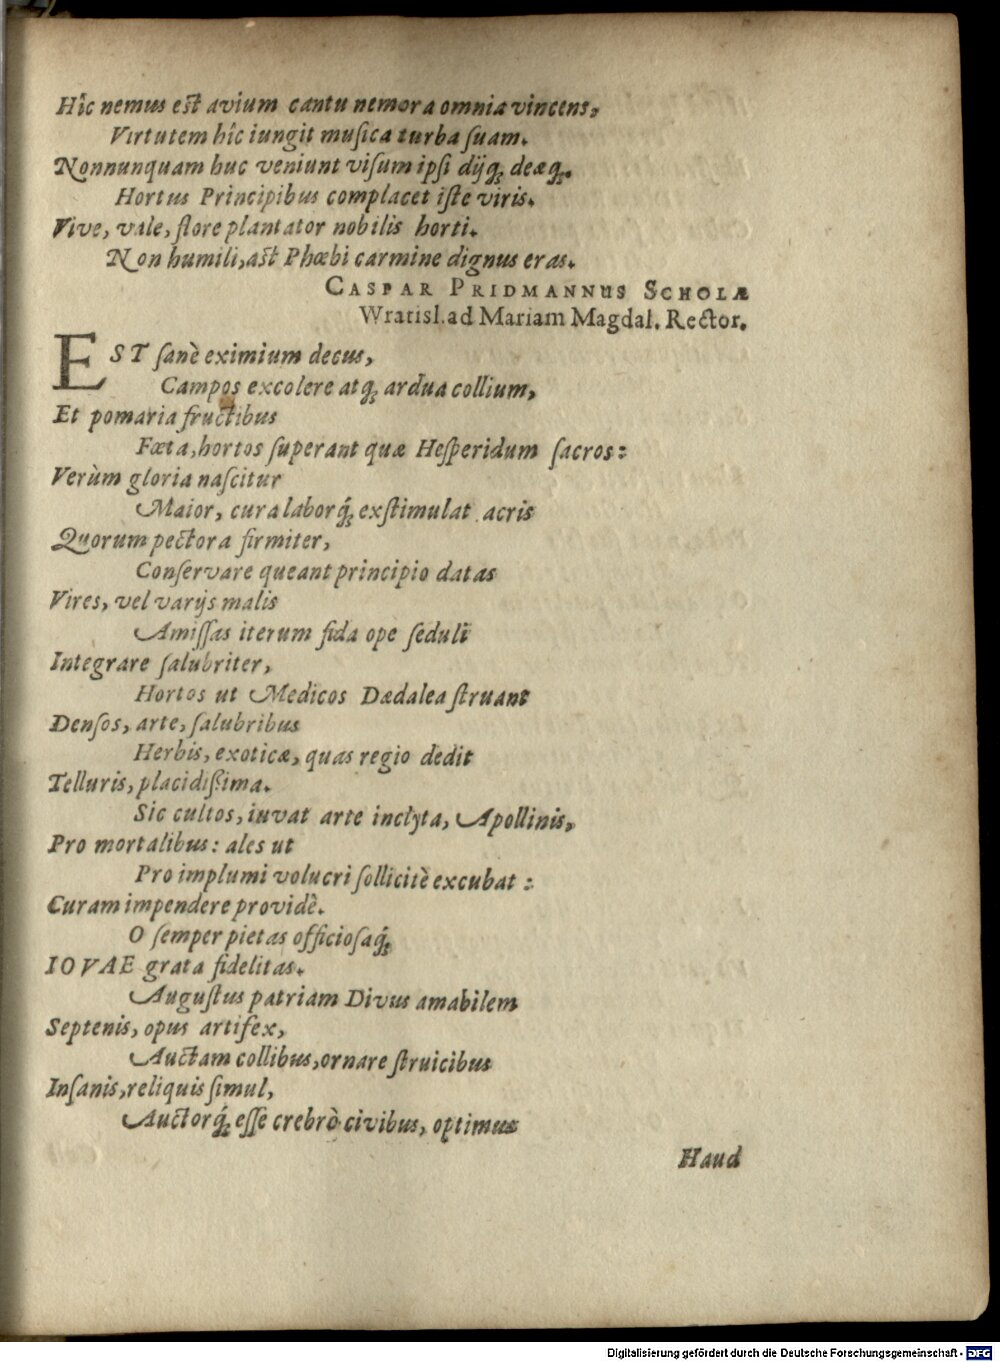 Hîc nemus est avium cantu nemora omnia vincens,
Virtutem hîc iungit musica turba suam.
Nonnunquam huc veniunt visum ipsi dijq́; deæq́;.
Hortus Principibus complacet iste viris.
Vive, vale, flore plantator nobilis horti.
Non humili, ast Phœbi carmine dignus eras.
CASPAR PRIDMANNUS SCHOLÆ
Wratisl. ad Mariam Magdal. Rector.
EST sanè eximium decus,
Campos excolere atq́; ardua collium,
Et pomaria fructibus
Fœta, hortos superant quæ Hesperidum sacros:
Verùm gloria nascitur
Maior, cura laborq́; exstimulat acris
Quorum pectora firmiter,
Conservare queant principio datas
Vires, vel varijs malis
Amissas iterum fida ope seduli
Integrare salubriter,
Hortos ut Medicos Dædalea struant
Densos, arte, salubribus
Herbis, exoticæ, quas regio dedit
Telluris, placidissima.
Sic cultos, iuvat arte inclyta, Apollinis,
Pro mortalibus: ales ut
Pro implumi volucri sollicitè excubat:
Curam impendere providè.
O semper pietas officiosaq́;
IOVAE grata fidelitas.
Augustus patriam Divus amabilem
Septenis, opus artifex,
Auctam collibus, ornare struicibus
Insanis, reliquis simul,
Auctorq́; esse crebrò civibus, optimus
Haud
Digitalisierung gefördert durch die Deutsche Forschungsgemeinschaft - DFG